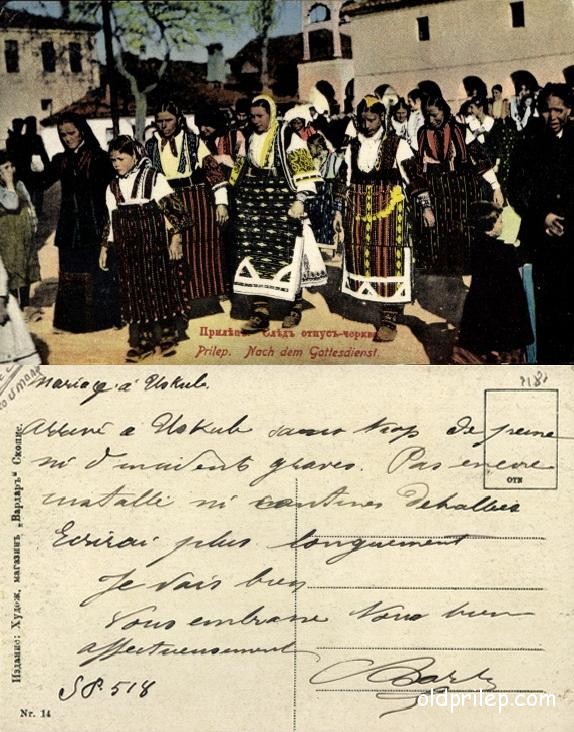 Прилѣпъ. Слѣдъ отпусъ-черква
Prilep. Nach dem Gottesdienst.
à Uskub.
Arrivé a Uskub sans trop de peine
ni d'incidents graves. Pas encore
installé ni cantines déballées
Ecrirai plus longuement
Je vais bien
Vous embrasse tous bien
affectueusement
S P. 518
ОТК
Издание: Худож. магазинъ „Вардаръ“ Скопие.
Nr. 14
oldprilep.com